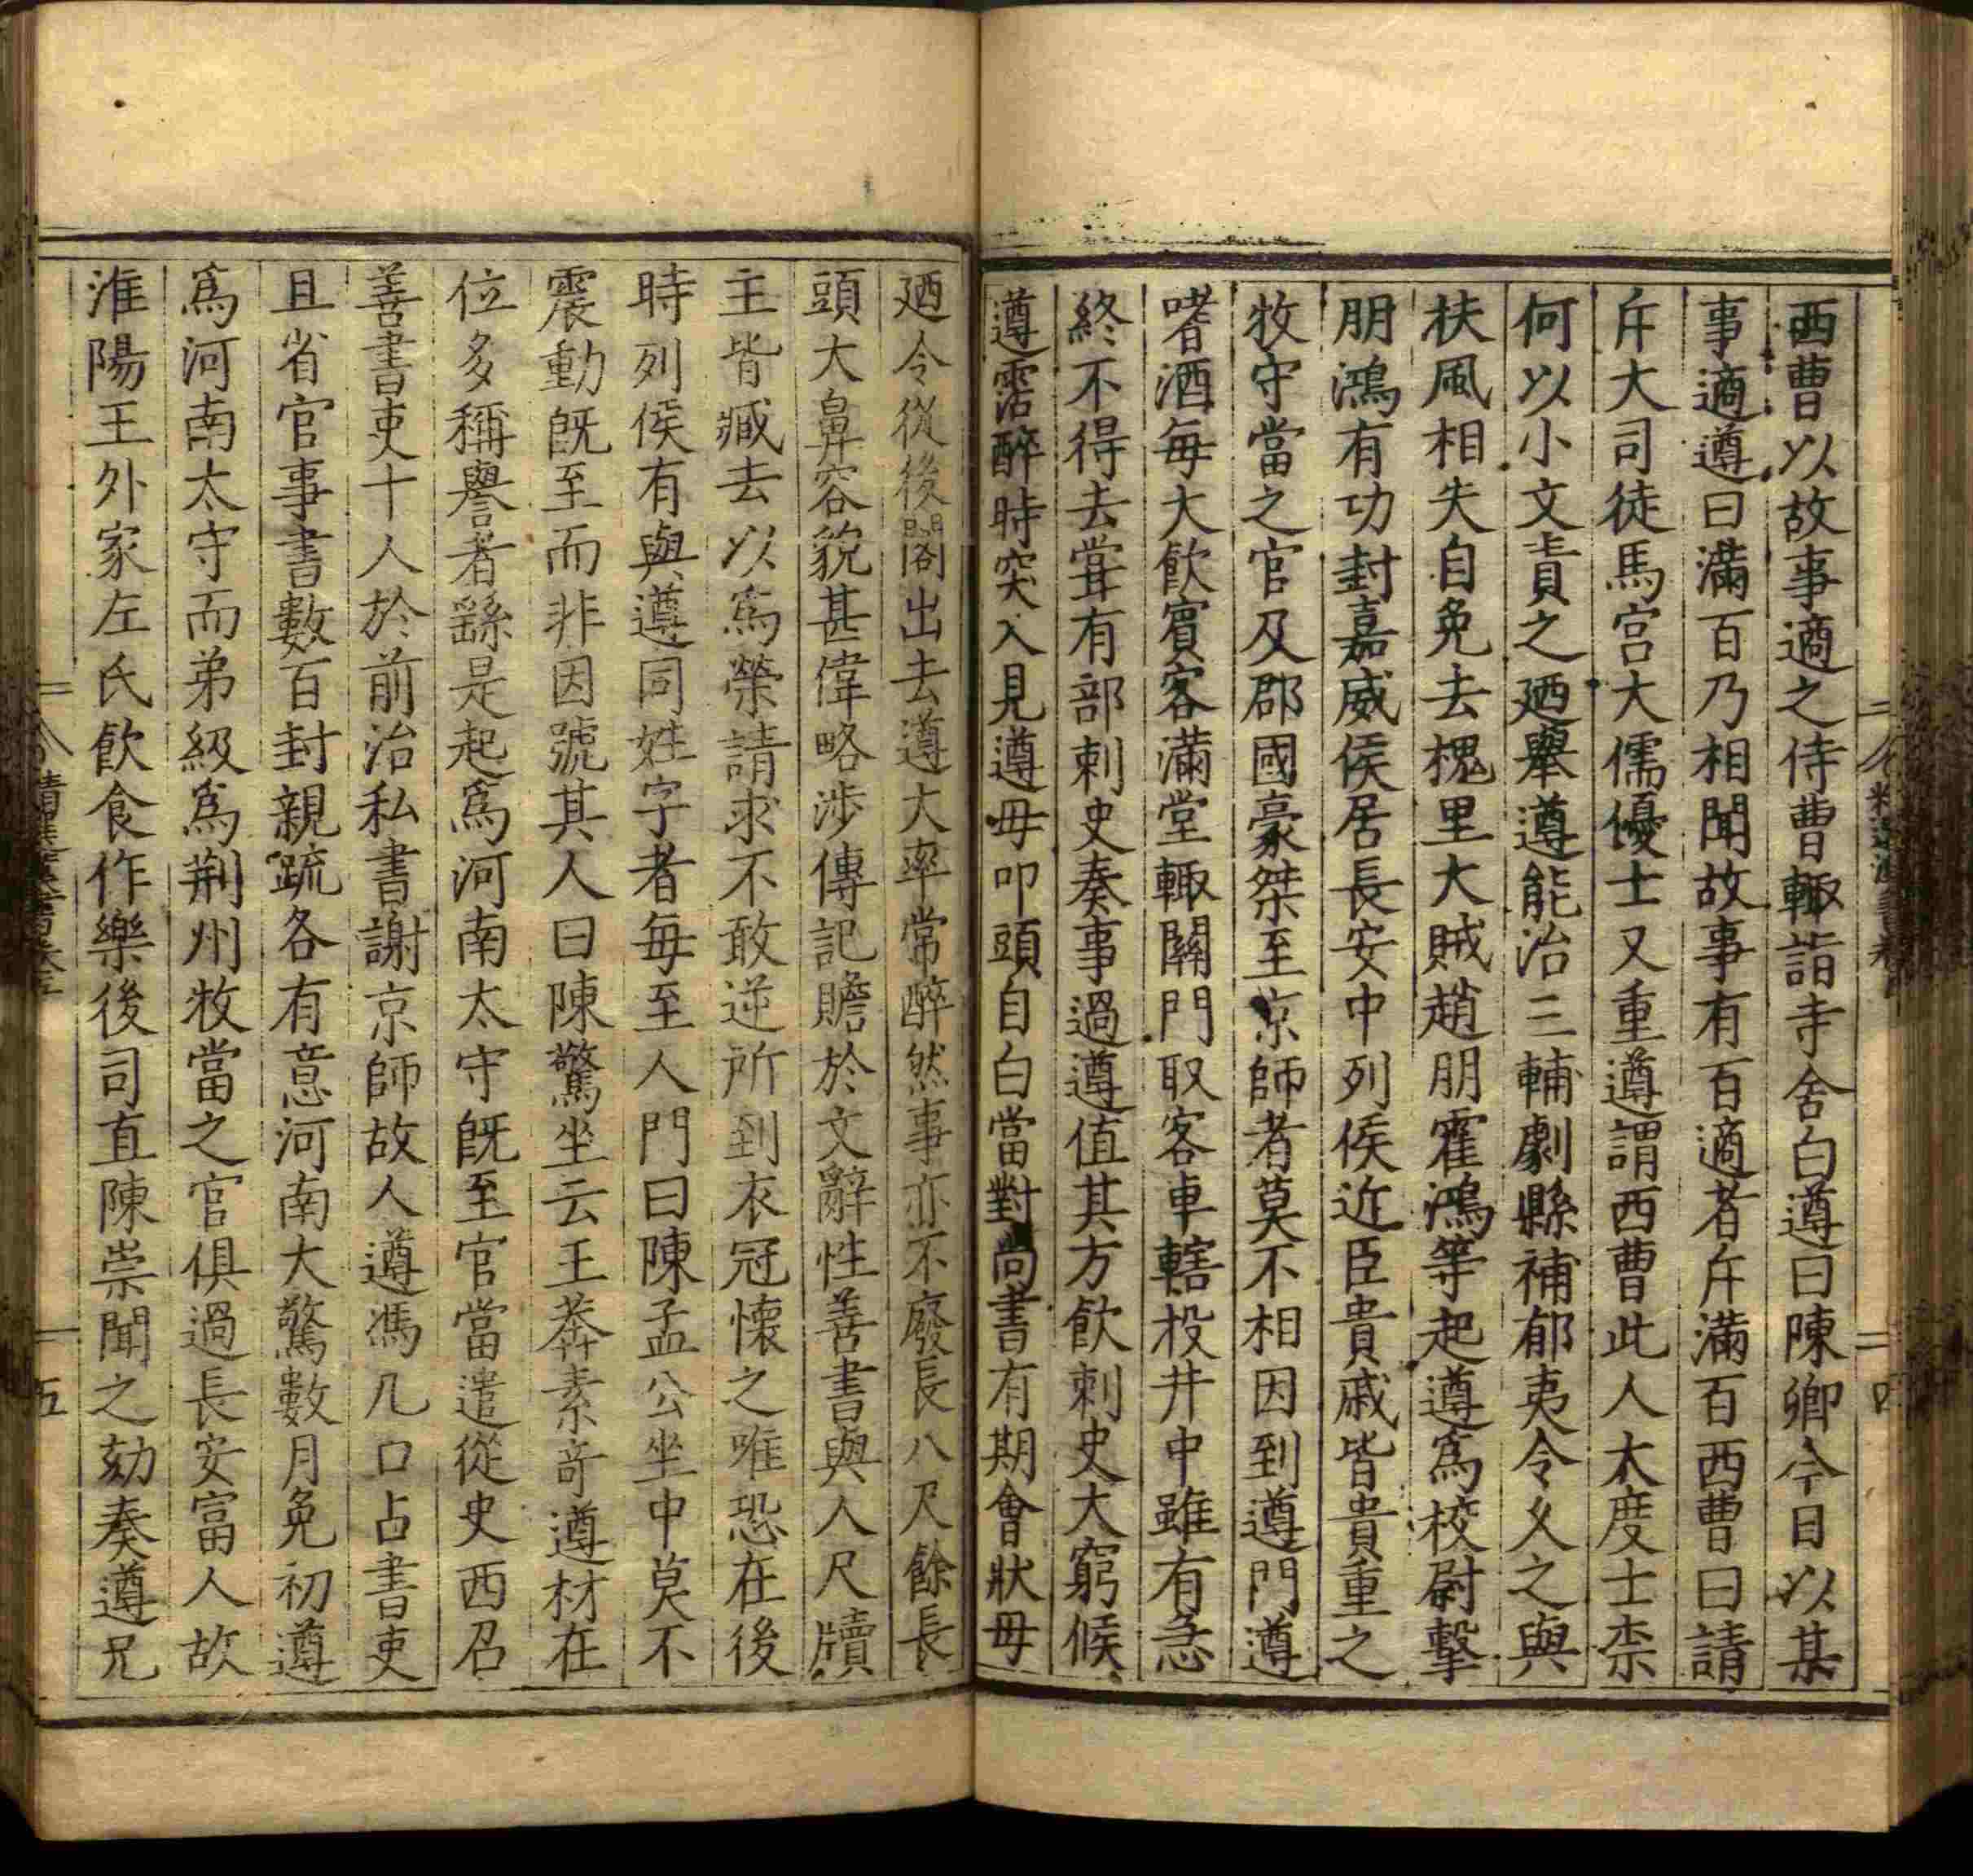 西曹以故事適之侍曹輙詣寺舍白遵曰陳卿今日以某
事適遵曰滿百乃相聞故事有百適者斥滿百西曹曰請
斥大司徒馬宫大儒優士又重遵謂西曹此人大度士柰
何以小文責之廼舉遵能治三輔劇縣補郁夷令乆之與
扶風相失自免去槐里大賊趙朋霍鴻等起遵爲校尉擊
朋鴻有功封嘉威侯居長安中列侯近臣貴戚皆貴重之
牧守當之官及郡國豪桀至京師者莫不相因到遵門遵
嗜酒每大飲賓客滿堂輙關門取客車轄投井中雖有急
終不得去甞有部刺史奏事過遵值其方飲刺史大窮候
遵霑醉時突入見遵母叩頭自白當對尚書有期會狀毋
廼令從後閣出去遵大率常醉然事亦不廢長八尺餘長
頭大鼻容貌甚偉略涉傳記贍於文辭性善書與人尺牘
主皆臧去以爲榮請求不敢逆所到衣冠懷之唯恐在後
時列侯有與遵同姓字者每至人門曰陳孟公坐中莫不
震動既至而非因號其人曰陳驚坐云王莽素竒遵材在
位多稱譽者繇是起爲河南太守既至官當遣從史西召
善書吏十人於前治私書謝京師故人遵馮几口占書吏
且省官事書數百封親疏各有意河南大驚數月免初遵
爲河南太守而弟級爲荆州牧當之官俱過長安富人故
淮陽王外家左氏飲食作樂後司直陳崇聞之劾奏遵兄
五